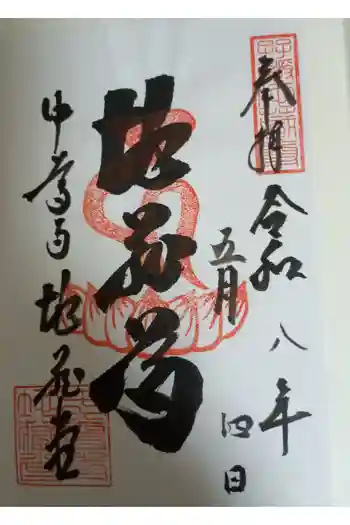 奉拝
令和八年
五月
四日
地蔵尊
中尊寺 地蔵堂